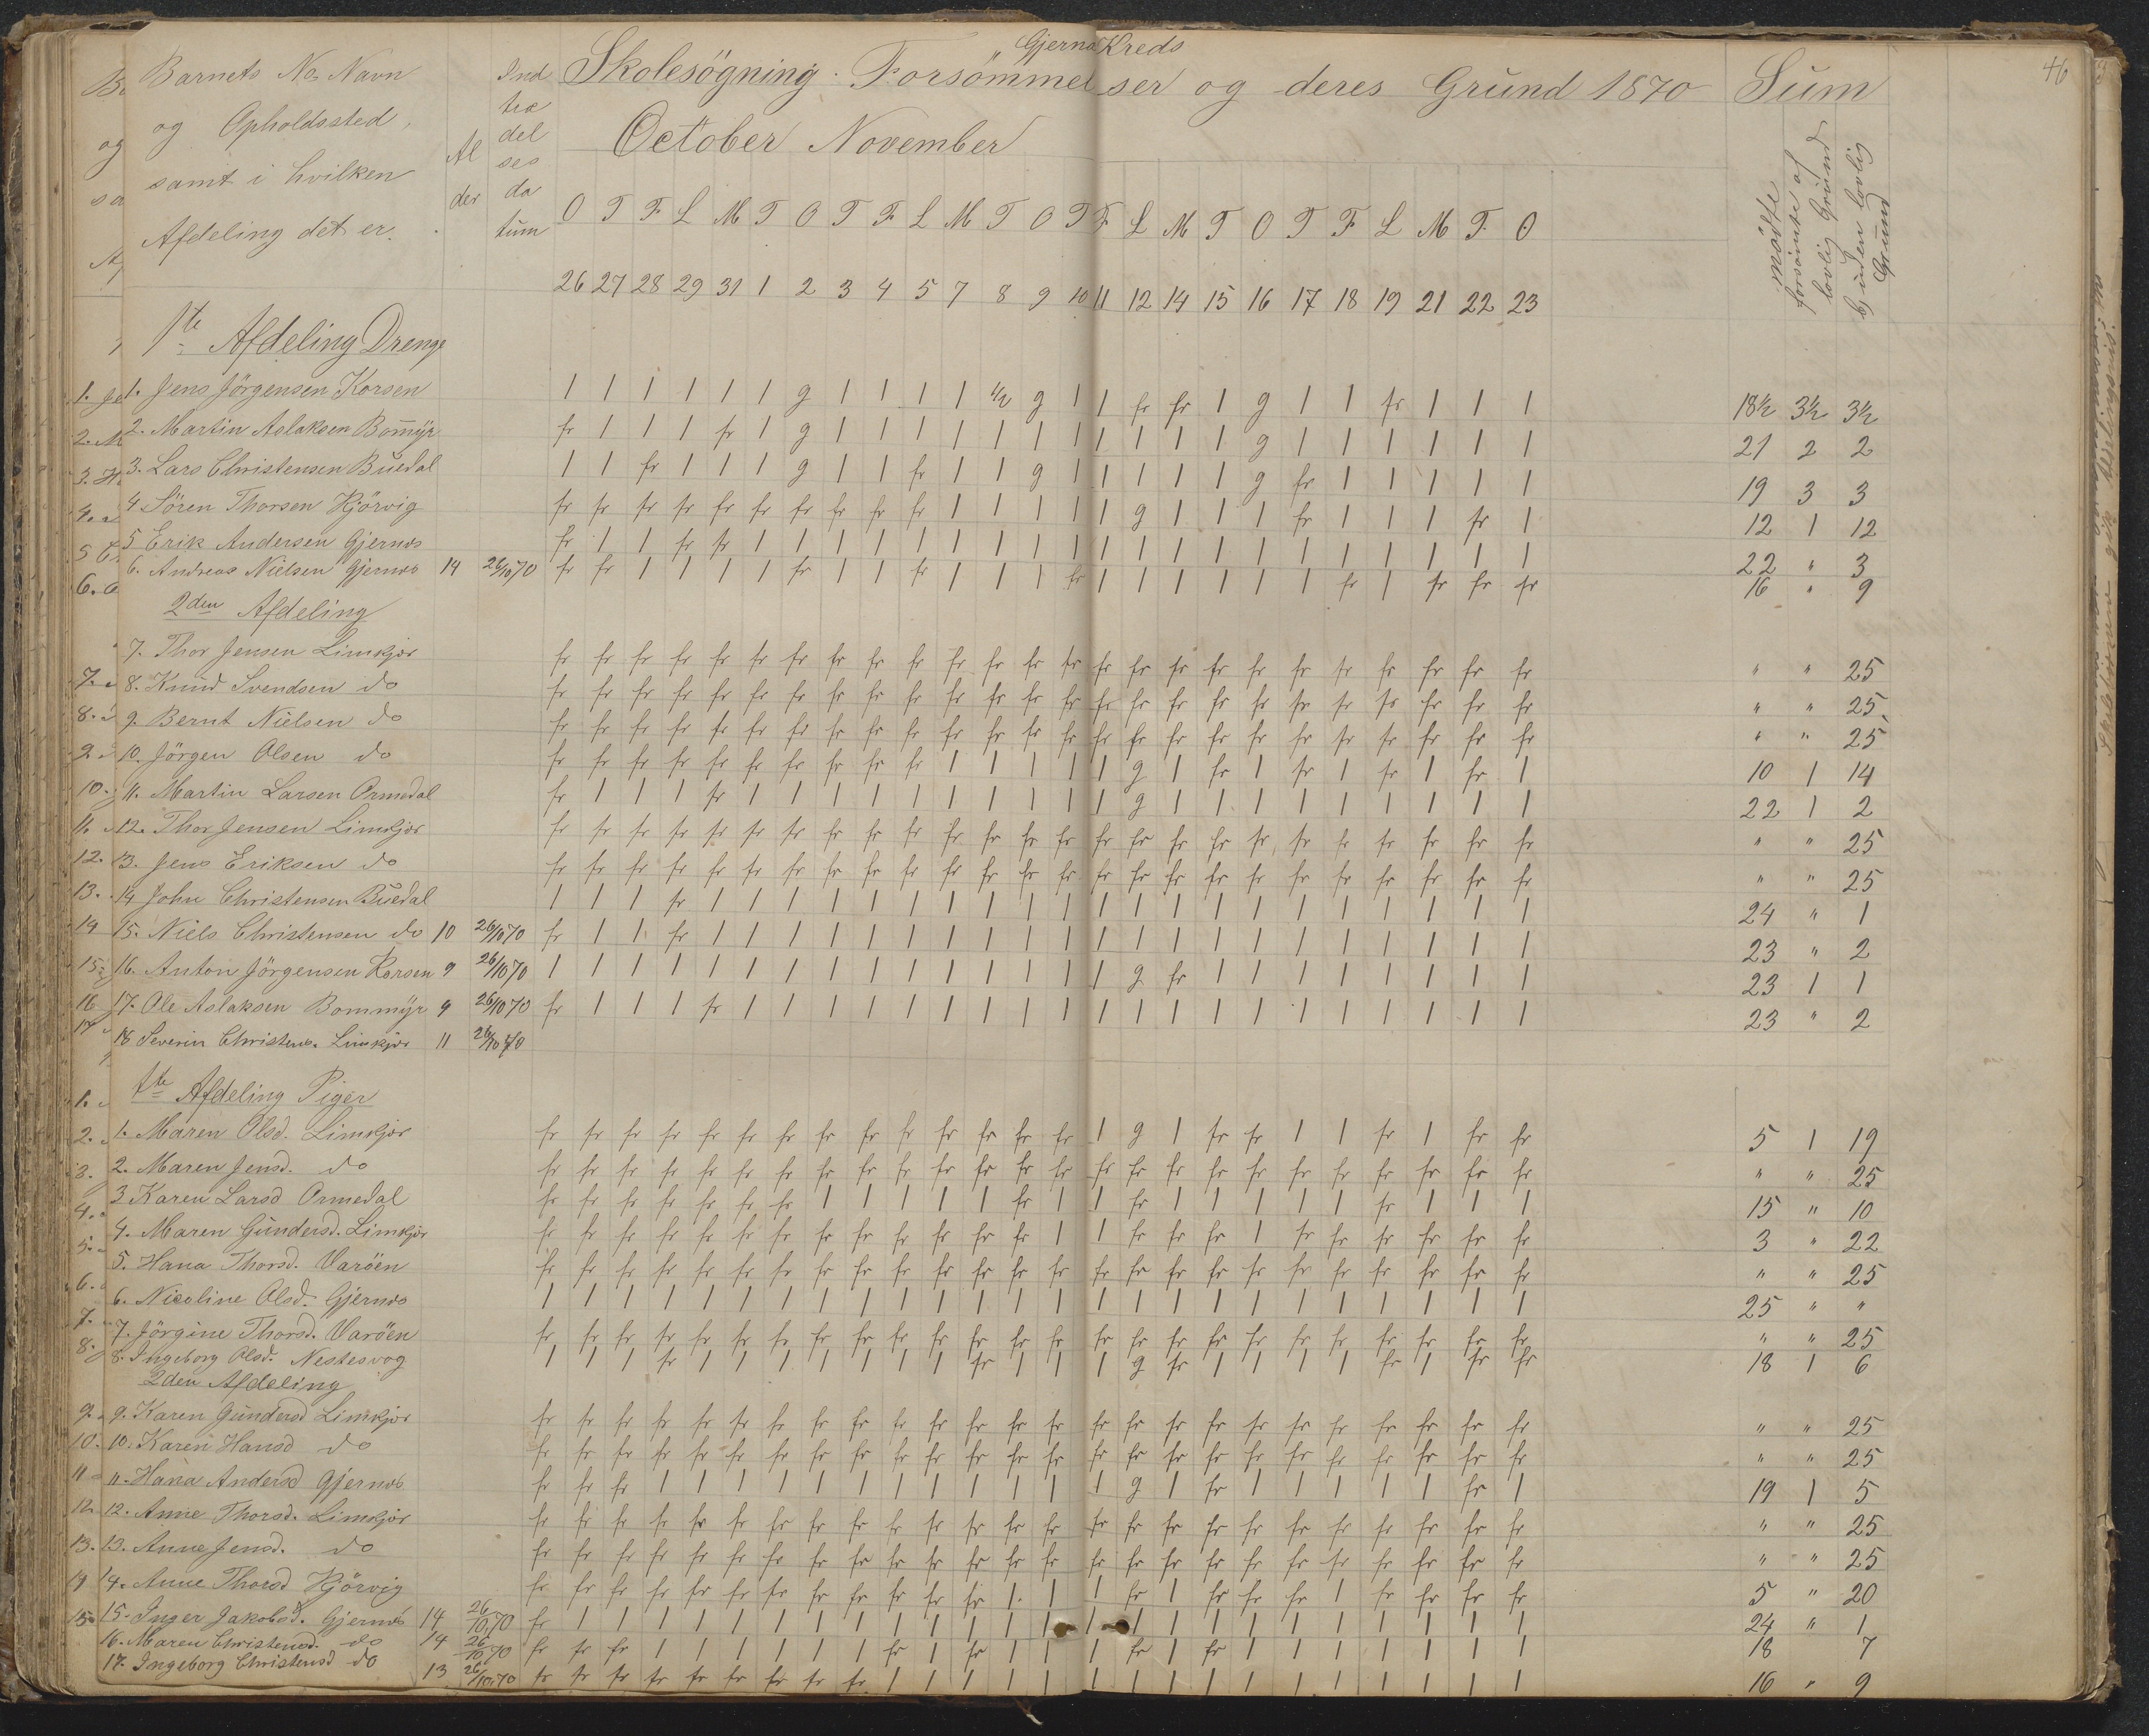 Gjernæs Kreds
46
Barnets No, Navn
og Opholdssted,
samt i hvilken
Afdeling det er.
Al
der
Ind
træ
del
ses
da
tum
Skolesögning. Forsömmelser og deres Grund 1870
Sum
October November
mödte
forsömte af lovlig Grund
b) uden lovlig Grund
O T F L M T O T F L M T O T F L M T O T F L M T O
26 27 28 29 31 1 2 3 4 5 7 8 9 10 11 12 14 15 16 17 18 19 21 22 23
1te Afdeling Drenge
1. Jens Jörgensen Korsen 1 1 1 1 1 1 g 1 1 1 1 1/2 g 1 1 fr fr 1 g 1 1 fr 1 1 1 18½ 3½ 3½
2. Martin Aslaksen Bom̅yr fr 1 1 1 fr 1 g 1 1 1 1 1 1 1 1 1 1 1 g 1 1 1 1 1 1 21 2 2
3. Lars Christensen Buedal 1 1 fr 1 1 1 g 1 1 fr 1 1 g 1 1 1 1 1 g fr 1 1 1 1 1 19 3 3
4 Sören Thorsen Kjörvig fr fr fr fr fr fr fr fr fr fr 1 1 1 1 1 g 1 1 1 fr 1 1 1 fr 1 12 1 12
5 Erik Andersen Gjernæs fr 1 1 fr fr 1 1 1 1 1 1 1 1 1 1 1 1 1 1 1 1 1 1 1 1 22 " 3
6. Andreas Nielsen Gjernæs 14 26/10 70 fr fr 1 1 1 1 fr 1 1 fr 1 1 1 fr 1 1 1 1 1 1 fr 1 fr fr fr 16 " 9
2den Afdeling
7. Thor Jensen Limkjær fr fr fr fr fr fr fr fr fr fr fr fr fr fr fr fr fr fr fr fr fr fr fr fr fr " " 25
8. Knud Svendsen do fr fr fr fr fr fr fr fr fr fr fr fr fr fr fr fr fr fr fr fr fr fr fr fr fr " " 25
9. Bernt Nielsen do fr fr fr fr fr fr fr fr fr fr fr fr fr fr fr fr fr fr fr fr fr fr fr fr fr " " 25
10. Jörgen Olsen do fr fr fr fr fr fr fr fr fr fr 1 1 1 1 1 g 1 fr 1 fr 1 fr 1 fr 1 10 1 14
11. Martin Larsen Ormedal fr 1 1 1 fr 1 1 1 1 1 1 1 1 1 1 g 1 1 1 1 1 1 1 1 1 22 1 2
12. Thor Jensen Limkjær fr fr fr fr fr fr fr fr fr fr fr fr fr fr fr fr fr fr fr fr fr fr fr fr fr " " 25
13. Jens Eriksen do fr fr fr fr fr fr fr fr fr fr fr fr fr fr fr fr fr fr fr fr fr fr fr fr fr " " 25
14 John Christensen Buedal 1 1 1 fr 1 1 1 1 1 1 1 1 1 1 1 1 1 1 1 1 1 1 1 1 1 24 " 1
15. Niels Christensen do 10 26/10 70 fr 1 1 fr 1 1 1 1 1 1 1 1 1 1 1 1 1 1 1 1 1 1 1 1 1 23 " 2
16. Anton Jörgensen Korsen 9 26/10 70 1 1 1 1 1 1 1 1 1 1 1 1 1 1 1 g fr 1 1 1 1 1 1 1 1 23 1 1
17. Ole Aslaksen Bommyr 9 26/10 70 fr 1 1 1 fr 1 1 1 1 1 1 1 1 1 1 1 1 1 1 1 1 1 1 1 1 23 " 2
18 Severin Christens. Limkjær 11 26/10 70
1te Afdeling Piger
1. Maren Olsd. Limkjær fr fr fr fr fr fr fr fr fr fr fr fr fr fr 1 g 1 fr fr 1 1 fr 1 fr fr 5 1 19
2. Maren Jensd. do fr fr fr fr fr fr fr fr fr fr fr fr fr fr fr fr fr fr fr fr fr fr fr fr fr " " 25
3 Karen Larsd Ormedal fr fr fr fr fr fr fr 1 1 1 1 1 fr 1 1 fr 1 1 1 1 1 fr 1 1 1 15 " 10
4. Maren Gundersd. Limkjær fr fr fr fr fr fr fr fr fr fr fr fr fr 1 1 fr fr fr 1 fr fr fr fr fr fr 3 " 22
5. Hana Thorsd. Varöen fr fr fr fr fr fr fr fr fr fr fr fr fr fr fr fr fr fr fr fr fr fr fr fr fr " " 25
6. Nicoline Olsd. Gjernæs 1 1 1 1 1 1 1 1 1 1 1 1 1 1 1 1 1 1 1 1 1 1 1 1 1 25 " "
7. Jörgine Thorsd. Varöen fr fr fr fr fr fr fr fr fr fr fr fr fr fr fr fr fr fr fr fr fr fr fr fr fr " " 25
8. Ingeborg Olsd. Nestesvog 1 1 1 fr 1 1 1 1 1 1 1 fr 1 1 1 g fr 1 1 1 1 fr 1 fr fr 18 1 6
2den Afdeling
9. Karen Gundersd Limkjær fr fr fr fr fr fr fr fr fr fr fr fr fr fr fr fr fr fr fr fr fr fr fr fr fr " " 25
10. Karen Hansd do fr fr fr fr fr fr fr fr fr fr fr fr fr fr fr fr fr fr fr fr fr fr fr fr fr " " 25
11. Hana Andersd Gjernæs fr fr fr 1 1 1 1 1 1 1 1 1 1 1 1 g 1 fr 1 1 1 1 1 fr 1 19 1 5
12. Anne Thorsd. Limkjær fr fr fr fr fr fr fr fr fr fr fr fr fr fr fr fr fr fr fr fr fr fr fr fr fr " " 25
13. Anne Jensd. do fr fr fr fr fr fr fr fr fr fr fr fr fr fr fr fr fr fr fr fr fr fr fr fr fr " " 25
14. Anne Thorsd Kjörvig fr fr fr fr fr fr fr fr fr fr fr fr 1 1 1 fr 1 fr fr fr 1 fr fr fr fr 5 " 20
15. Inger Jakobsd. Gjernæs 14 26/10 70 fr 1 1 1 1 1 1 1 1 1 1 1 1 1 1 1 1 1 1 1 1 1 1 1 1 24 " 1
16. Maren Christensd. do 14 26/10 70 fr fr fr 1 1 1 1 1 1 fr 1 fr 1 1 1 fr 1 fr 1 1 1 1 1 1 1 18 7
17. Ingeborg Christensd do 13 26/10 70 fr fr fr fr fr fr fr fr fr 1 1 1 1 1 1 1 1 1 1 1 1 1 1 1 1 16 " 9